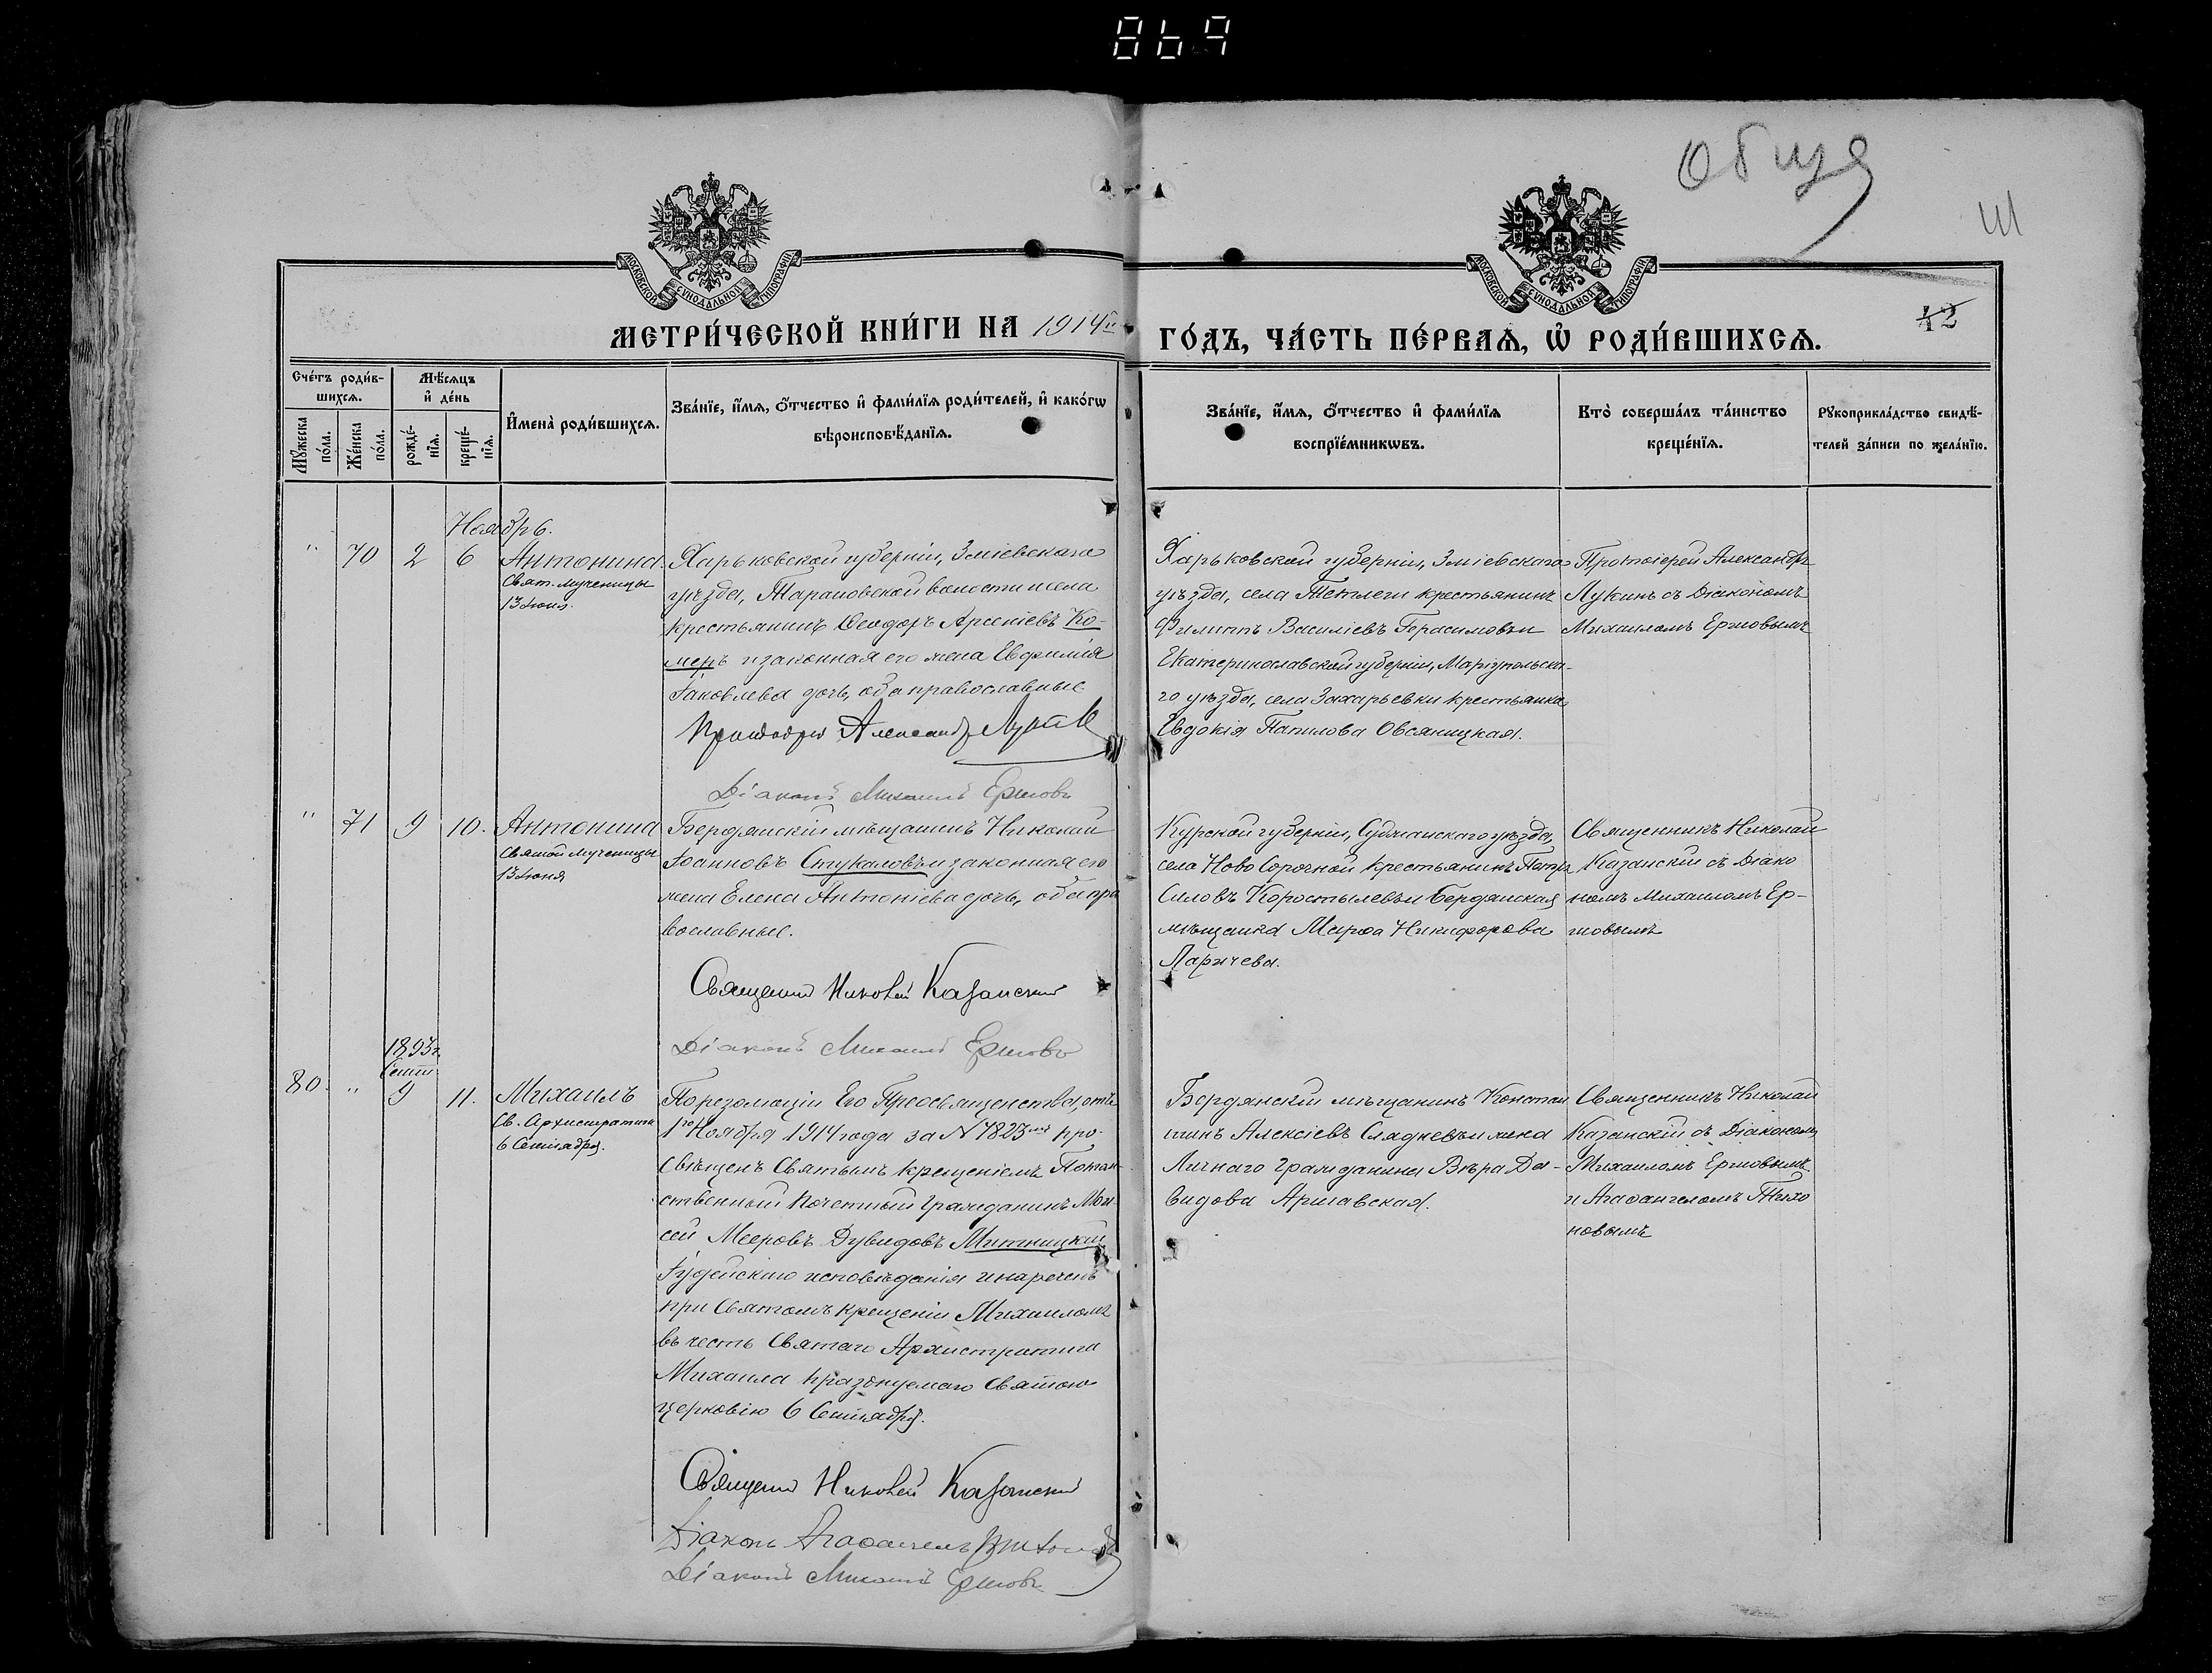 869
Обще
111
МОСКОВСКОЙ СѴНОДАЛЬНОЙ ТИПОГРАФІИ
МОСКОВСКОЙ СѴНОДАЛЬНОЙ ТИПОГРАФІИ
42
МЕТРИ́ЧЕСКОЙ КНИ́ГИ НА 1914й ГО́ДЪ, ЧА́СТЬ ПЕ́РВАѦ, Ѽ РОДИ́ВШИХСѦ.
Сче́тъ роди́в-
шихсѧ.
Мꙋжеска по́ла.
Же́нска по́ла.
Мѣ́сѧцъ
и҆ де́нь
рожде́-
нїѧ.
креще́-
нїѧ.
И҆мена̀ роди́вшихсѧ.
Зва́нїе, и҆́мѧ, ѻ҆́тчество и҆ фами́лїѧ роди́телей, и҆ како́гѡ
вѣроисповѣ́данїѧ.
Зва́нїе, и҆́мѧ, ѻ҆́тчество и҆ фами́лїѧ
воспрїе́мникѡвъ.
Кто̀ соверша́лъ та́инство
креще́нїѧ.
Рꙋкоприкла́дство свидѣ́-
телей за́писи по жела́нїю.
Ноябрь.
" 70 2 6 Антонина
Свят. мученицы
13 Іюня.
Харьковской губерніи, Зміевскаго
уѣзда, Тарановской волости и села
крестьянинъ Ѳеодоръ Арсеніевъ Ко-
меръ и законная его жена Евфимія
Іаковлева дочь, оба православные
Протоіерей Александръ Лукин
Діаконъ Михаилъ Ершовъ
Харьковской губерніи, Зміевскаго
уѣзда, села Тетлеги крестьянинъ
Филиппъ Василіевъ Герасимовъ и
Екатеринославской губерніи, Маріупольска-
го уѣзда, села Захарьевки крестьянка
Евдокія Папилова Овсяницкая.
Протоіерей Александръ
Лукинъ съ Діакономъ
Михаиломъ Ершовымъ
" 71 9 10. Антонина
Святой мученицы
13 Іюня
Бердянскій мѣщанинъ Николай
Іоанновъ Стукаловъ и законная его
жена Елена Антоніева дочь, оба пра
вославные.
Священник Николай Казанский
Діаконъ Михаилъ Ершовъ
Курской губерніи, Суджанскаго уѣзда,
села Ново Сорочной крестьянинъ Петръ
Силовъ Коростылевъ и Бердянская
мѣщанка Марѳа Никифорова
Ларичева.
Священникъ Николай
Казанскій съ Діако
номъ Михаиломъ Ер-
шовымъ
1893 г.
Сент.
80. " 9 11. Михаилъ
Св. Архистратига
6 Сентября.
По резолюціи Его Преосвященства, отъ
1го Ноября 1914 года за N 7823мъ про-
свѣщенъ Святымъ Крещеніемъ Потом-
ственный Почетный Гражданинъ Мои-
сей Мееровъ Дувидовъ Митницкій
Іудейскаго исповѣданія и нареченъ
при Святомъ крещеніи Михаиломъ
въ честь Святаго Архистратига
Михаила празднуемаго Святою
Церковію 6 Сентября.
Священник Николай Казанский
Діаконъ Агаѳангелъ
Діаконъ Михаилъ Ершовъ
Бердянскій мѣщанинъ Констан
тинъ Алексіевъ Сладневъ и жена
Личнаго Гражданина Вѣра Да-
видова Аршавская.
Священникъ Николай
Казанскій съ Діакономъ
Михаиломъ Ершовымъ
и Агаѳангеломъ Тихо
новымъ